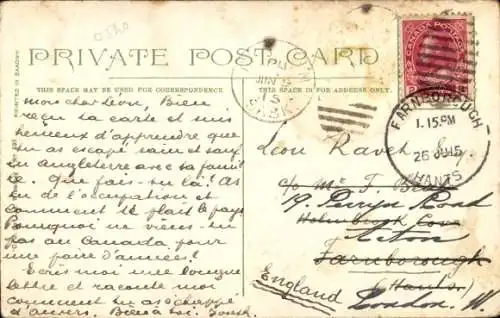 PRIVATE POST CARD
THIS SPACE MAY BE USED FOR CORRESPONDENCE
THIS SPACE IS FOR ADDRESS ONLY.
PRINTED IN SAXONY
mon cher Léon, Bien
reçu ta carte et suis
heureux d'apprendre que
tu as escapé sain et sauf
en Angleterre avec ta famil
le. Que fais-tu là! As
tu de l'occupation et
comment te plait le pays
Pourquoi ne viens-tu
pas au Canada, pour
une paire d'années!
Ecris moi une longue
lettre et raconte moi
comment tu as échappé
d'Anvers. Bien à toi. Joseph.
CANADA POSTAGE
JUN
15
FARNBOROUGH
1.15.PM
26 JU 15
HANTS
Leon Ravet Esq.
c/o Mr F.
19. Perryn Road
Holmbrogk Cove
Acton
Farnborough
(Hants.)
London. W.
England